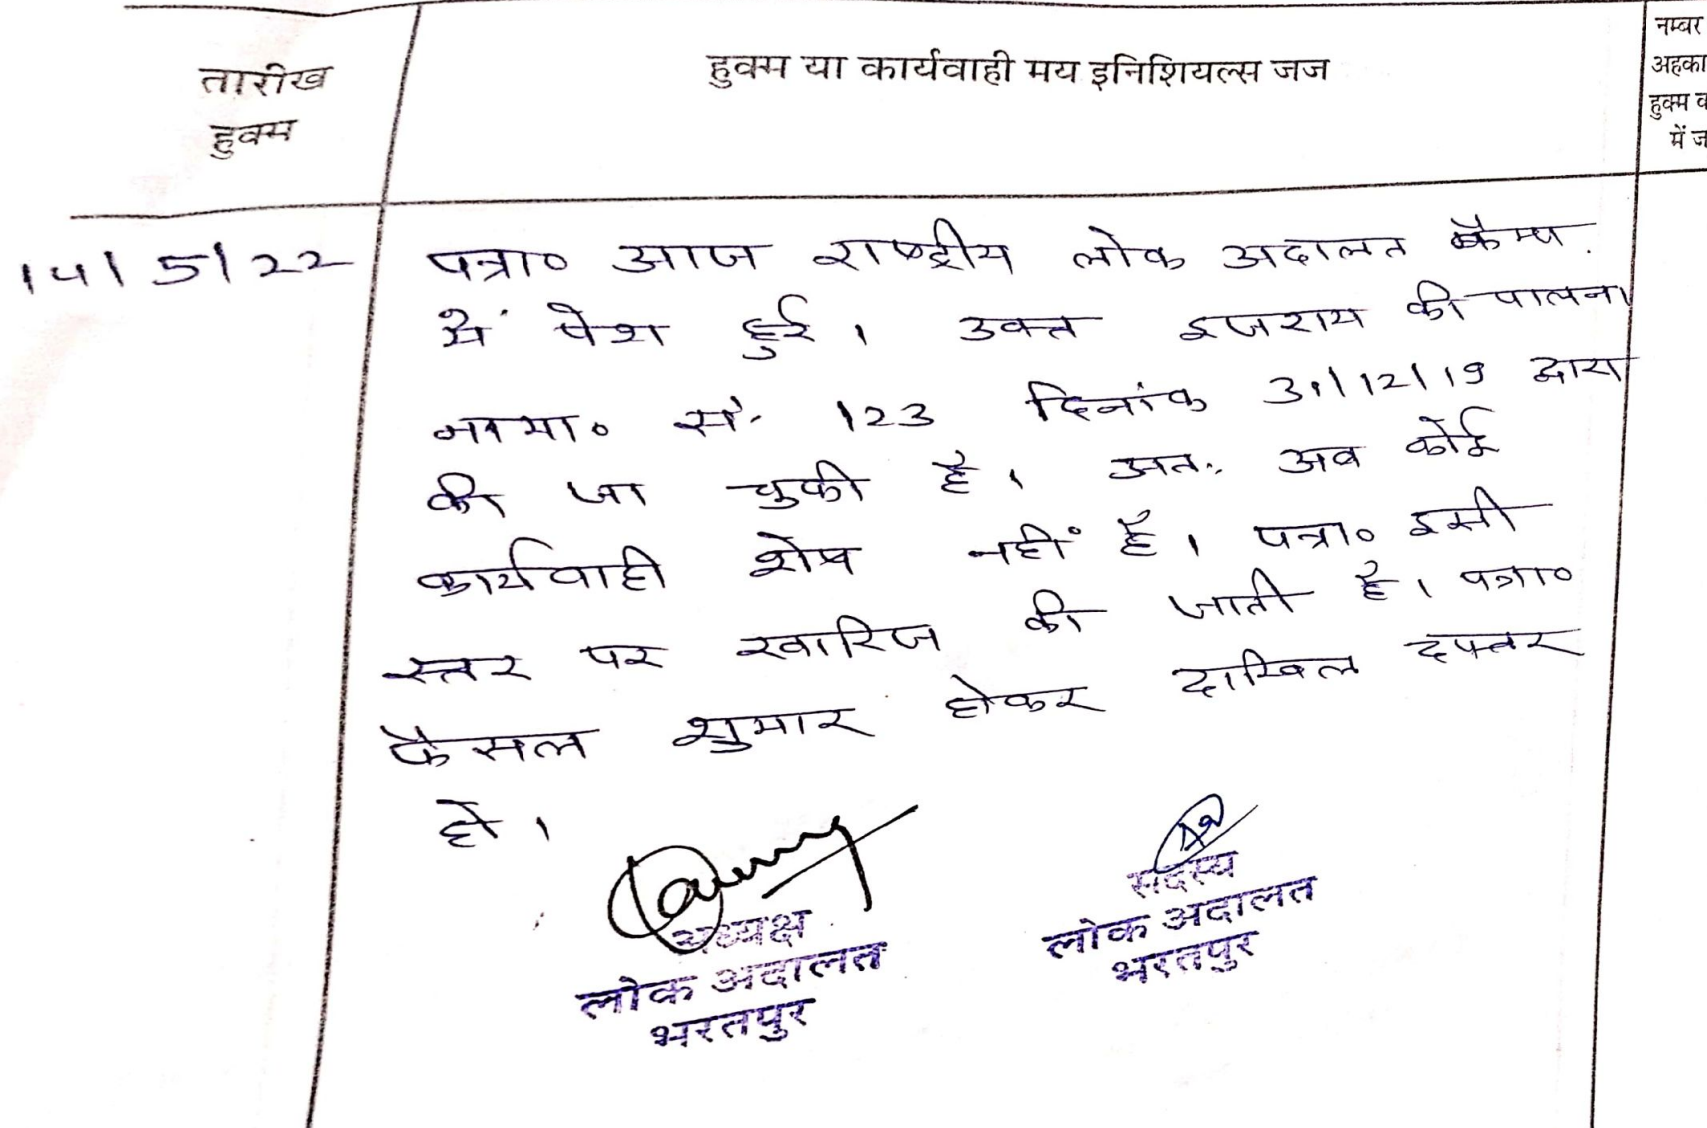 तारीख
हुक्म
हुक्म या कार्यवाही मय इनिशियल्स जज
नम्बर
अहका
हुक्म
में ज
14/5/22
पत्रा० आज राष्ट्रीय लोक अदालत कैम्प
में पेश हुई। उक्त इजराय की पालना
नामा० सं. 123 दिनांक 31/12/19 द्वारा
की जा चुकी है। अतः अब कोई
कार्यवाही शेष नहीं है। पत्रा० इसी
स्तर पर खारिज की जाती है। पत्रा०
फैसल शुमार होकर दाखिल दफ्तर
हो।
अध्यक्ष
लोक अदालत
भरतपुर
सदस्य
लोक अदालत
भरतपुर